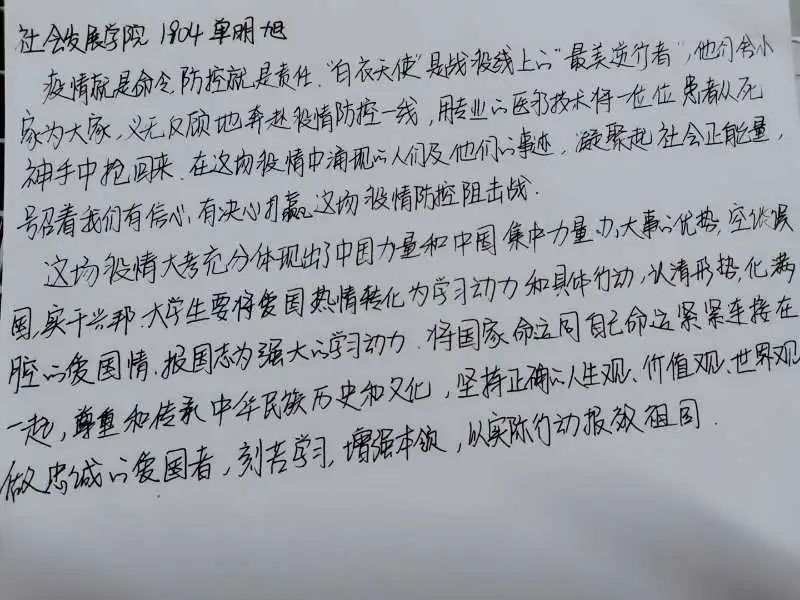 社会发展学院 1904 单明旭
疫情就是命令,防控就是责任."白衣天使"是战役线上的"最美逆行者",他们舍小
家为大家,义无反顾地奔赴疫情防控一线,用专业的医疗技术将一位位患者从死
神手中抢回来.在这场疫情中涌现的人们及他们的事迹,凝聚起社会正能量,
号召着我们有信心,有决心打赢这场疫情防控阻击战.
这场疫情大考充分体现出了中国力量和中国集中力量办大事的优势,空谈误
国,实干兴邦.大学生要将爱国热情转化为学习动力和具体行动,认清形势,化满
腔的爱国情,报国志为强大的学习动力.将国家命运同自己命运紧紧连接在
一起,尊重和传承中华民族历史和文化,坚持正确的人生观、价值观、世界观
做忠诚的爱国者,刻苦学习,增强本领,以实际行动报效祖国.